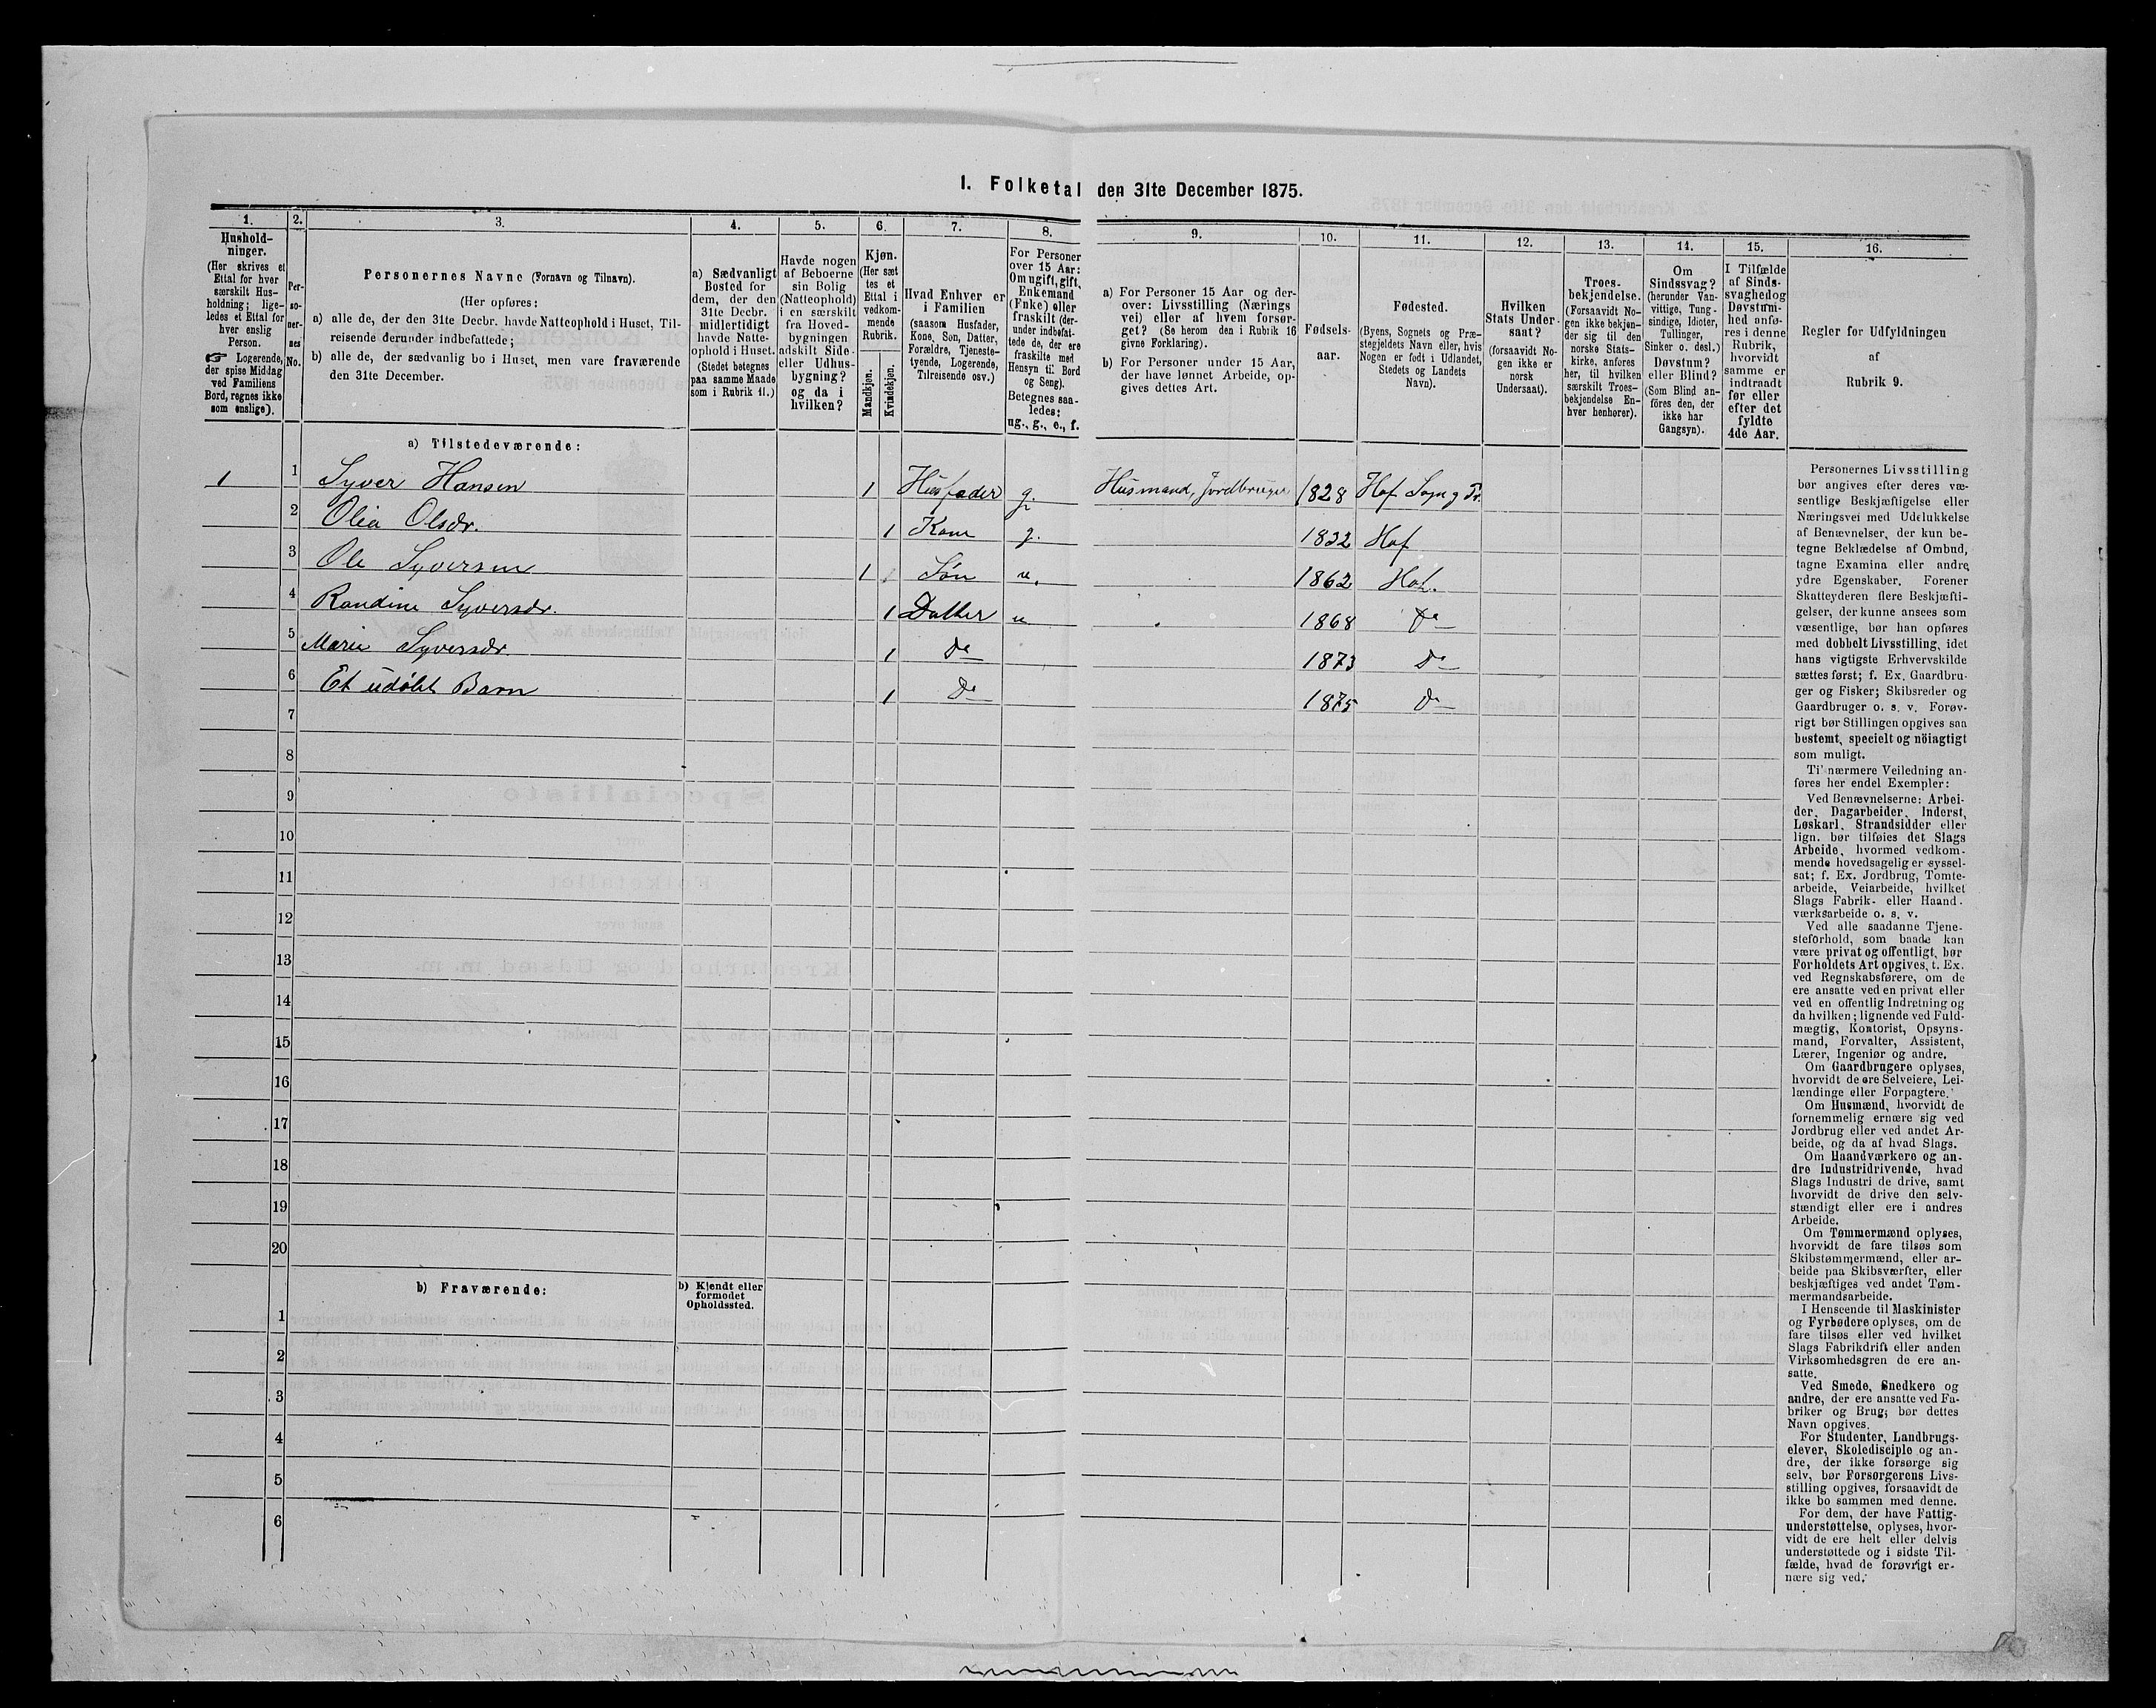 1. Folketal den 31te December 1875.
1.
2.
3.
4.
5.
6.
7.
8.
9.
10.
11.
12.
13.
14.
15.
16.
Hushold-
ninger.
(Her skrives et
Ettal for hver
særskilt Hus-
holdning; lige-
ledes et Ettal for
hver enslig
Person.
☞ Logerende,
der spise Middag
ved Familiens
Bord, regnes ikke
som enslige).
Per-
so-
ner-
nes
No.
Personernes Navne (Fornavn og Tilnavn).
(Her opføres:
a) alle de, der den 31te Decbr. havde Natteophold i Huset, Til-
reisende derunder indbefattede;
b) alle de, der sædvanlig bo i Huset, men vare fraværende
den 31te December.
a) Sædvanligt
Bosted for
dem, der den
31te Decbr.
midlertidigt
havde Natte-
ophold i Huset.
(Stedet betegnes
paa samme Maade
som i Rubrik 11.)
Havde nogen
af Beboerne
sin Bolig
(Natteophold)
i en særskilt
fra Hoved-
bygningen
adskilt Side-
eller Udhus-
bygning?
og da i
hvilken?
Kjøn.
(Her sæt
tes et
Ettal i
vedkom-
mende
Rubrik.
Mandkjøn.
Kvindekjøn.
Hvad Enhver er
i Familien
(saasom Husfader,
Kone, Søn, Datter,
Forældre, Tjeneste-
tyende, Logerende,
Tilreisende osv.)
For Personer
over 15 Aar:
Om ugift, gift,
Enkemand
(Enke) eller
fraskilt (der-
under indbefat-
tede de, der ere
fraskilte med
Hensyn til Bord
og Seng).
Betegnes saa-
ledes:
ug., g., e., f.
a) For Personer 15 Aar og der-
over: Livsstilling (Nærings
vei) eller af hvem forsør-
get? (Se herom den i Rubrik 16
givne Forklaring).
b) For Personer under 15 Aar,
der have lønnet Arbeide, op-
gives dettes Art.
Fødsels-
aar.
Fødested.
(Byens, Sognets og Præ-
stegjeldets Navn eller, hvis
Nogen er født i Udlandet,
Stedets og Landets
Navn).
Hvilken
Stats Under-
saat?
(forsaavidt No-
gen ikke er
norsk
Undersaat).
Troes-
bekjendelse.
(Forsaavidt No-
gen ikke bekjen-
der sig til den
norske Stats-
kirke, anføres
her, til hvilken
særskilt Troes-
bekjendelse En-
hver henhører).
Om
Sindssvag?
(herunder Van-
vittige, Tung-
sindige, Idioter,
Tullinger,
Sinker o. desl.)
Døvstum?
eller Blind?
(Som Blind an-
föres den, der
ikke har
Gangsyn).
I Tilfælde
af Sinds-
svaghedog
Døvstum-
hed anfø-
res i denne
Rubrik,
hvorvidt
samme er
indtraadt
før eller
efter det
fyldte
4de Aar.
Regler for Udfyldningen
af
Rubrik 9.
a) Tilstedeværende:
1 1 Syver Hansen 1 Husfader g. Husmand, Jordbruger 1828 Hof Sogn g Pr.
2 Olia Olsdr. 1 Kone g. 1832 Hof
3 Ole Syversen 1 Søn u. 1862 Hof.
4 Randine Syversdr. 1 Datter u 1868 Do
5 Marie Syversdr. 1 Do 1873 Do
6 Et udøbt Barn 1 Do 1875 Do
7
8
9
10
11
12
13
14
15
16
17
18
19
20
b) Fraværende:
b) Kjendt eller
formodet
Opholdssted.
1
2
3
4
5
6
Personernes Livsstilling
bør angives efter deres væ-
sentlige Beskjæftigelse eller
Næringsvei med Udelukkelse
af Benævnelser, der kun be-
tegne Beklædelse af Ombud,
tagne Examina eller andre
ydre Egenskaber. Forener
Skatteyderen flere Beskjæfti-
gelser, der kunne ansees som
væsentlige, bør han opføres
med dobbelt Livsstilling, idet
hans vigtigste Erhvervskilde
sættes først; f. Ex. Gaardbru-
ger og Fisker; Skibsreder og
Gaardbruger o. s. v. Forøv-
rigt bør Stillingen opgives saa
bestemt, specielt og nöiagtigt
som muligt.
Til nærmere Veiledning an-
føres her endel Exempler:
Ved Benævnelserne: Arbei-
der, Dagarbeider, Inderst,
Løskarl, Strandsidder eller
lign. bør tilføies det Slags
Arbeide, hvormed vedkom-
mende hovedsagelig er syssel-
sat; f. Ex. Jordbrug, Tomte-
arbeide, Veiarbeide, hvilket
Slags Fabrik- eller Haand-
værksarbeide o. s. v.
Ved alle saadanne Tjene-
steforhold, som baade kan
være privat og offentligt, bør
Forholdets Art opgives, t. Ex.
ved Regnskabsførere, om de
ere ansatte ved en privat eller
ved en offentlig Indretning og
da hvilken; lignende ved Fuld-
mægtig, Kontorist, Opsyns-
mand, Forvalter, Assistent,
Lærer, Ingeniør og andre.
Om Gaardbrugere oplyses,
hvorvidt de ere Selveiere, Lei-
lændinge eller Forpagtere.
Om Husmænd, hvorvidt de
fornemmelig ernære sig ved
Jordbrug eller ved andet Ar-
beide, og da af hvad Slags.
Om Haandværkere og an-
dre Industridrivende, hvad
Slags Industri de drive, samt
hvorvidt de drive den selv-
stændigt eller ere i andres
Arbeide.
Om Tømmermænd oplyses,
hvorvidt de fare tilsøs som
Skibstømmermænd, eller ar-
beide paa Skibsværfter, eller
beskjæftiges ved andet Tøm-
mermandsarbeide.
I Henseende til Maskinister
og Fyrbødere oplyses, om de
fare tilsøs eller ved hvilket
Slags Fabrikdrift eller anden
Virksomhedsgren de ere an-
satte.
Ved Smede, Snedkere og
andre, der ere ansatte ved Fa-
briker og Brug, bør dettes
Navn opgives.
For Studenter, Landbrugs-
elever, Skoledisciple og an-
dre, der ikke forsørge sig
selv, bør Forsørgerens Livs-
stilling opgives, forsaavidt de
ikke bo sammen med denne.
For dem, der have Fattig-
understøttelse, oplyses, hvor-
vidt de ere helt eller delvis
understøttede og i sidste Til-
fælde, hvad de forøvrigt er-
nære sig ved.